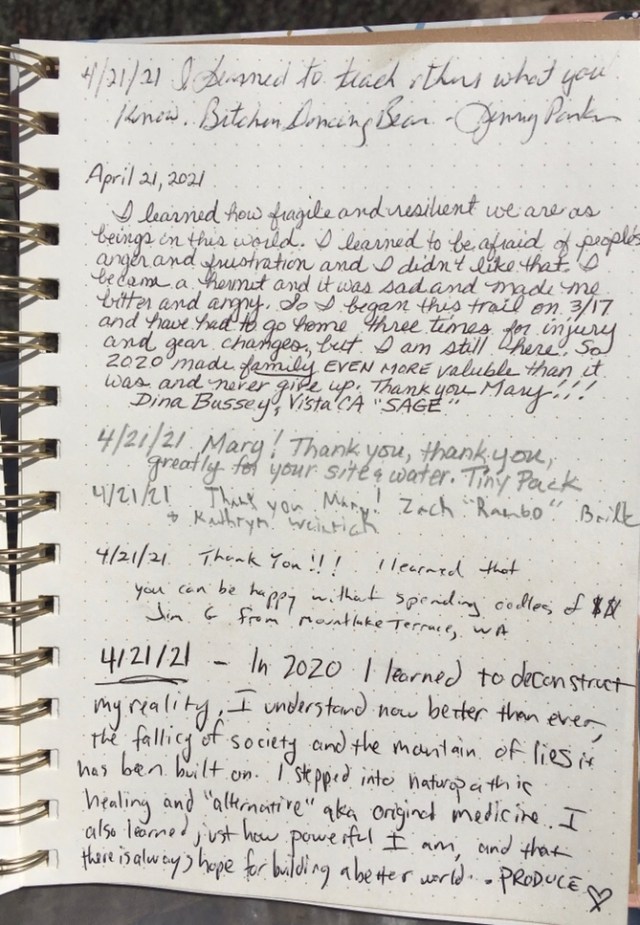 4/21/21 I learned to teach others what you
Know. Bitchen Dancing Bear - Jenny
April 21, 2021
I learned how fragile and resilient we are as
beings in this world. I learned to be afraid of people's
anger and frustration and I didn't like that. I
became a hermit and it was sad and made me
bitter and angry. So I began this trail on 3/17
and have had to go home three times for injury
and gear changes, but I am still here. So
2020 made family EVEN MORE valuble than it
was and never give up. Thank you Mary!!!
Dina Bussey, Vista CA "SAGE"
4/21/21 Mary! Thank you, thank you,
greatly for your site & water. Tiny Pack
4/21/21 Thank you Mary! Zach "Rambo"
& Kathryn
4/21/21. Thank You!!! I learned that
you can be happy without spending oodles of $$
Jim G from Mountlake Terrace, WA
4/21/21 - In 2020 I learned to deconstruct
my reality. I understand now better than ever,
the fallicy of society and the mountain of lies it
has been built on. I stepped into naturopathic
healing and "alternative" aka original medicine. I
also learned just how powerful I am, and that
there is always hope for building a better world. - PRODUCE ♡